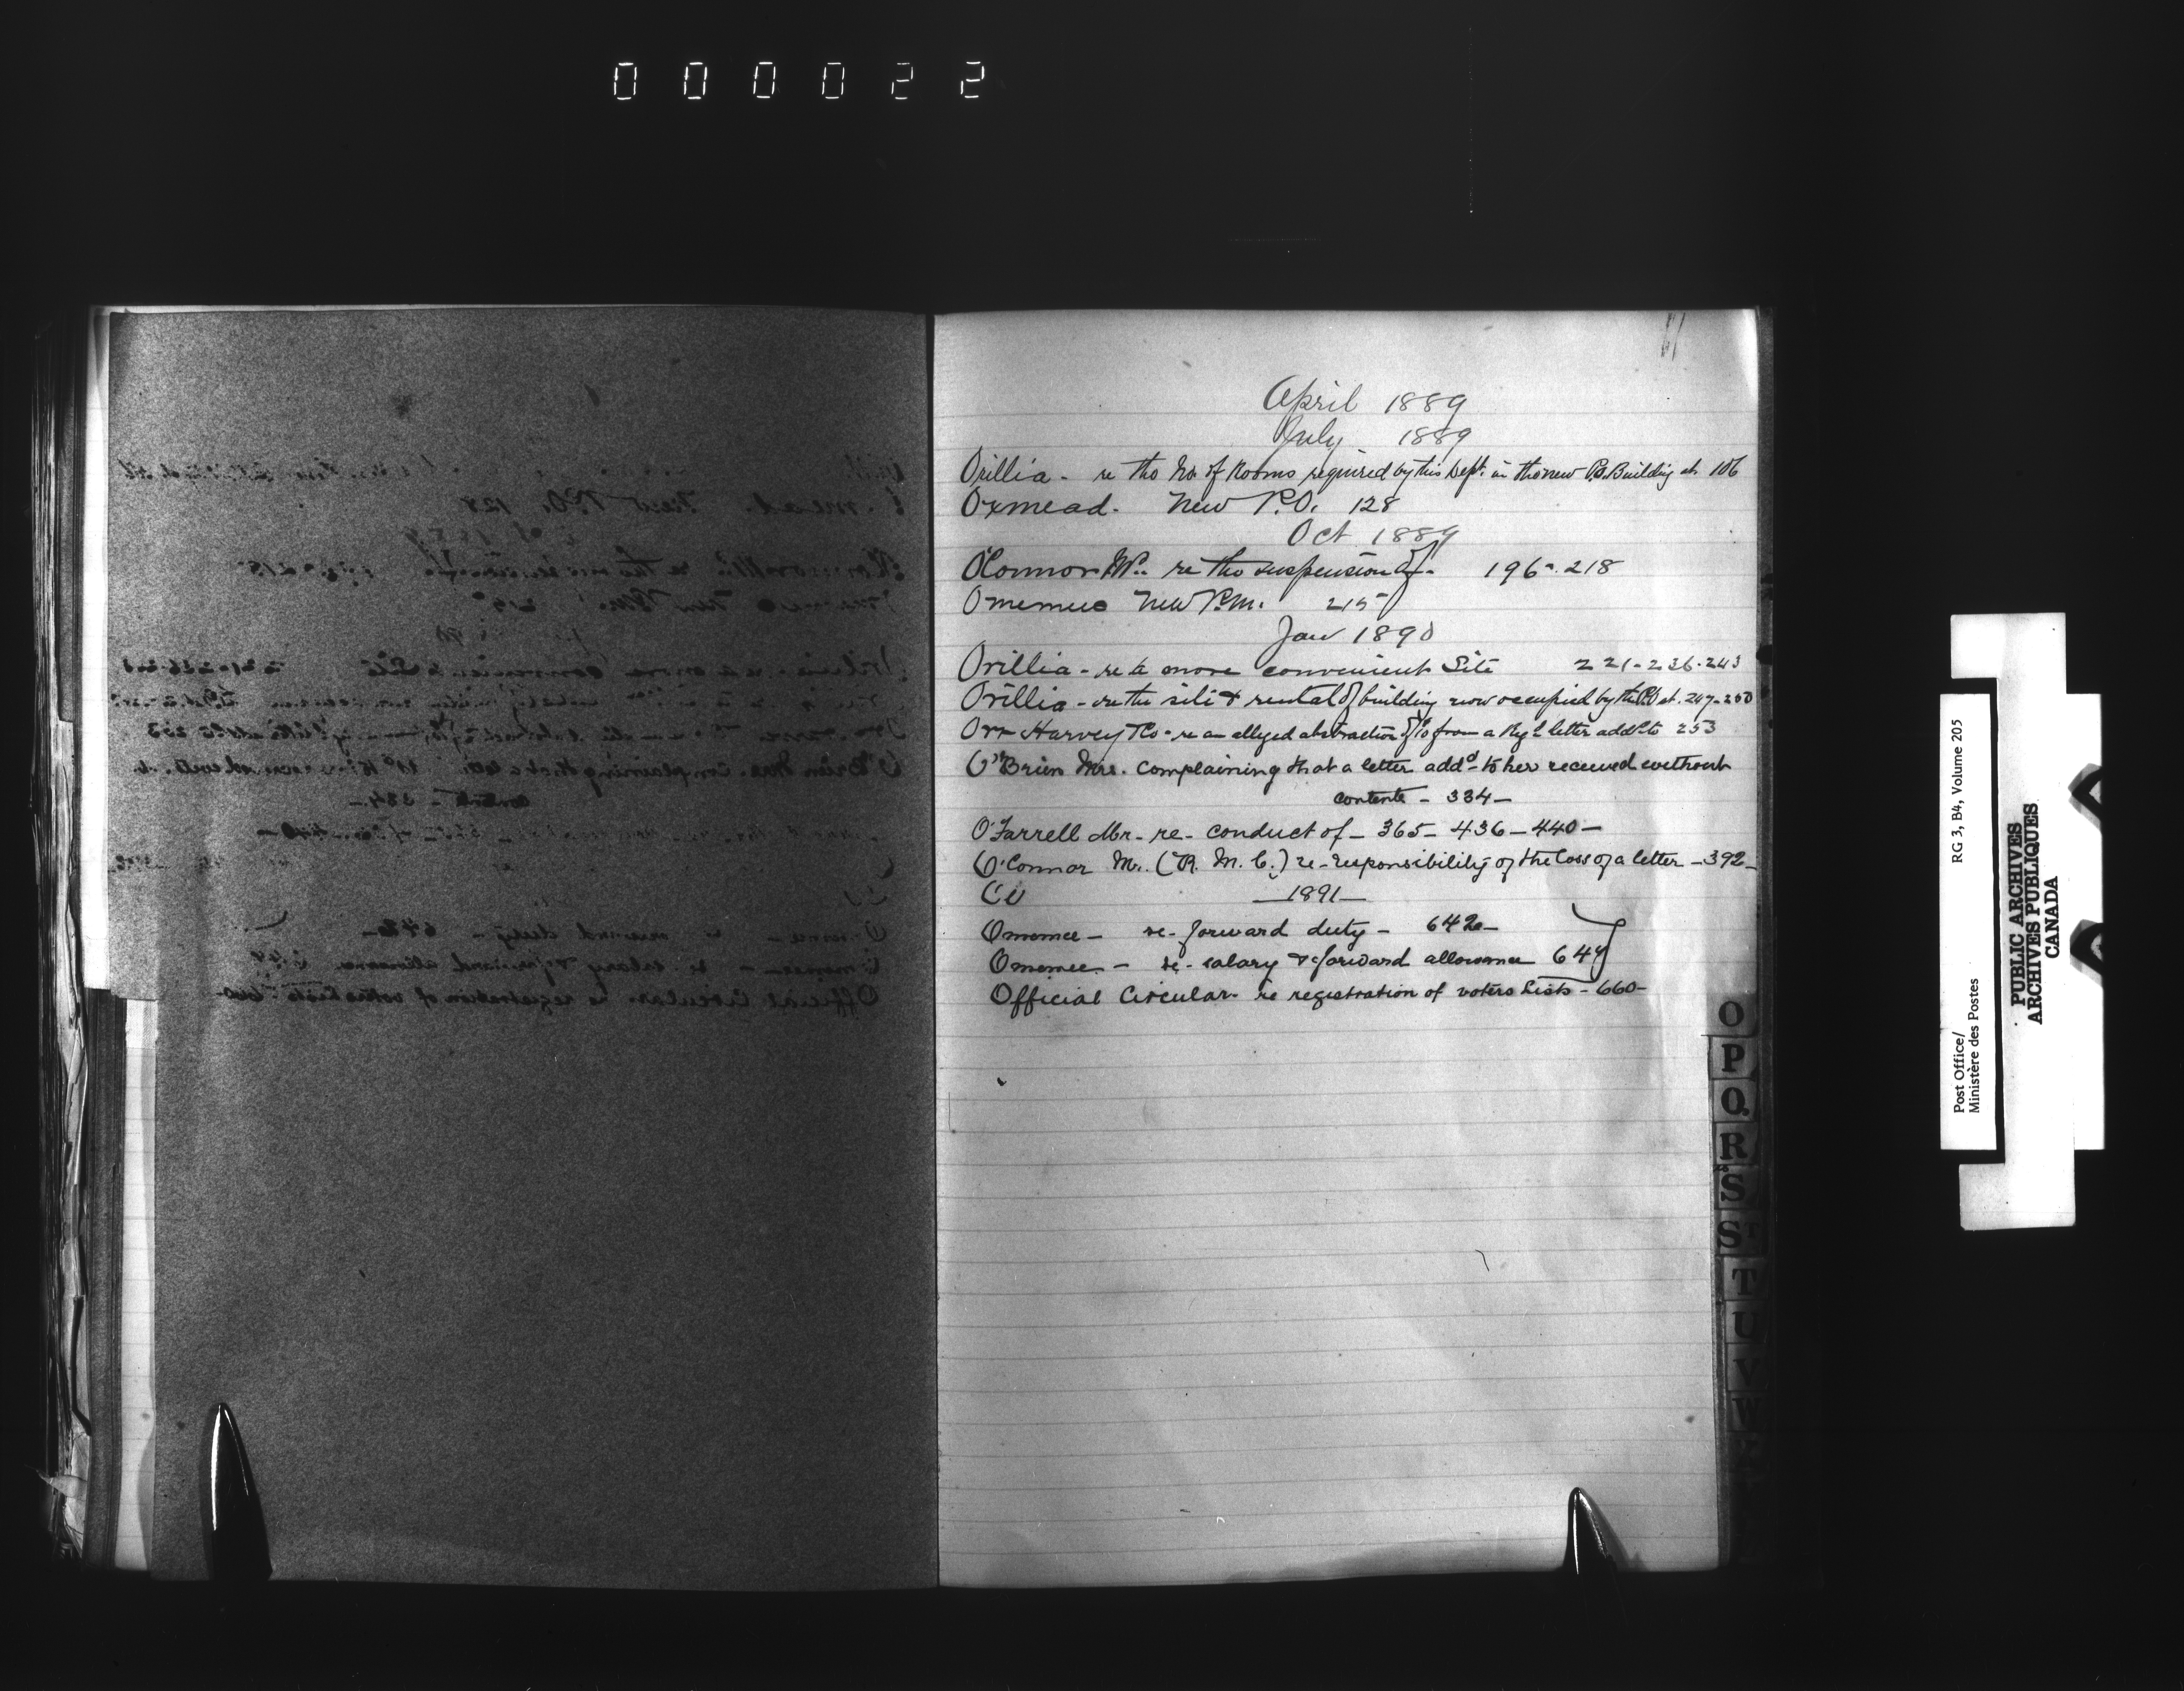 000022
April 1889
July 1889
Orillia - re the No. of Rooms required by this Dept. in the new P.O. Building at 106
Oxmead. New P.O. 128
Oct 1889
O'Connor Mr. re the suspension of - 196-218
Omemee New P.M. 215
Jan 1890
Orillia - re a more convenient Site 221-236-243
Orillia - re the site & rental of building now occupied by the P.O. at. 247-250
Orr Harvey & Co - re an alleged abstraction of from a Reg'd letter add'd to 253
O'Brien Mrs. complaining that a letter addd- to her received without
contents - 334 -
O'Farrell Mr - re - conduct of - 365 - 436 - 440 -
O'Connor Mr. (R. M. C.) re - responsibility of the loss of a letter - 392 -
1891
Omemee - re - forward duty - 642 -
Omemee - re - salary & forward allowance 644
Official Circular - re registration of voters Lists - 660 -
O
P
Q
R
S
S
T
U
V
W
Post Office/ RG 3, B4, Volume 205
Ministère des Postes
PUBLIC ARCHIVES
ARCHIVES PUBLIQUES
CANADA